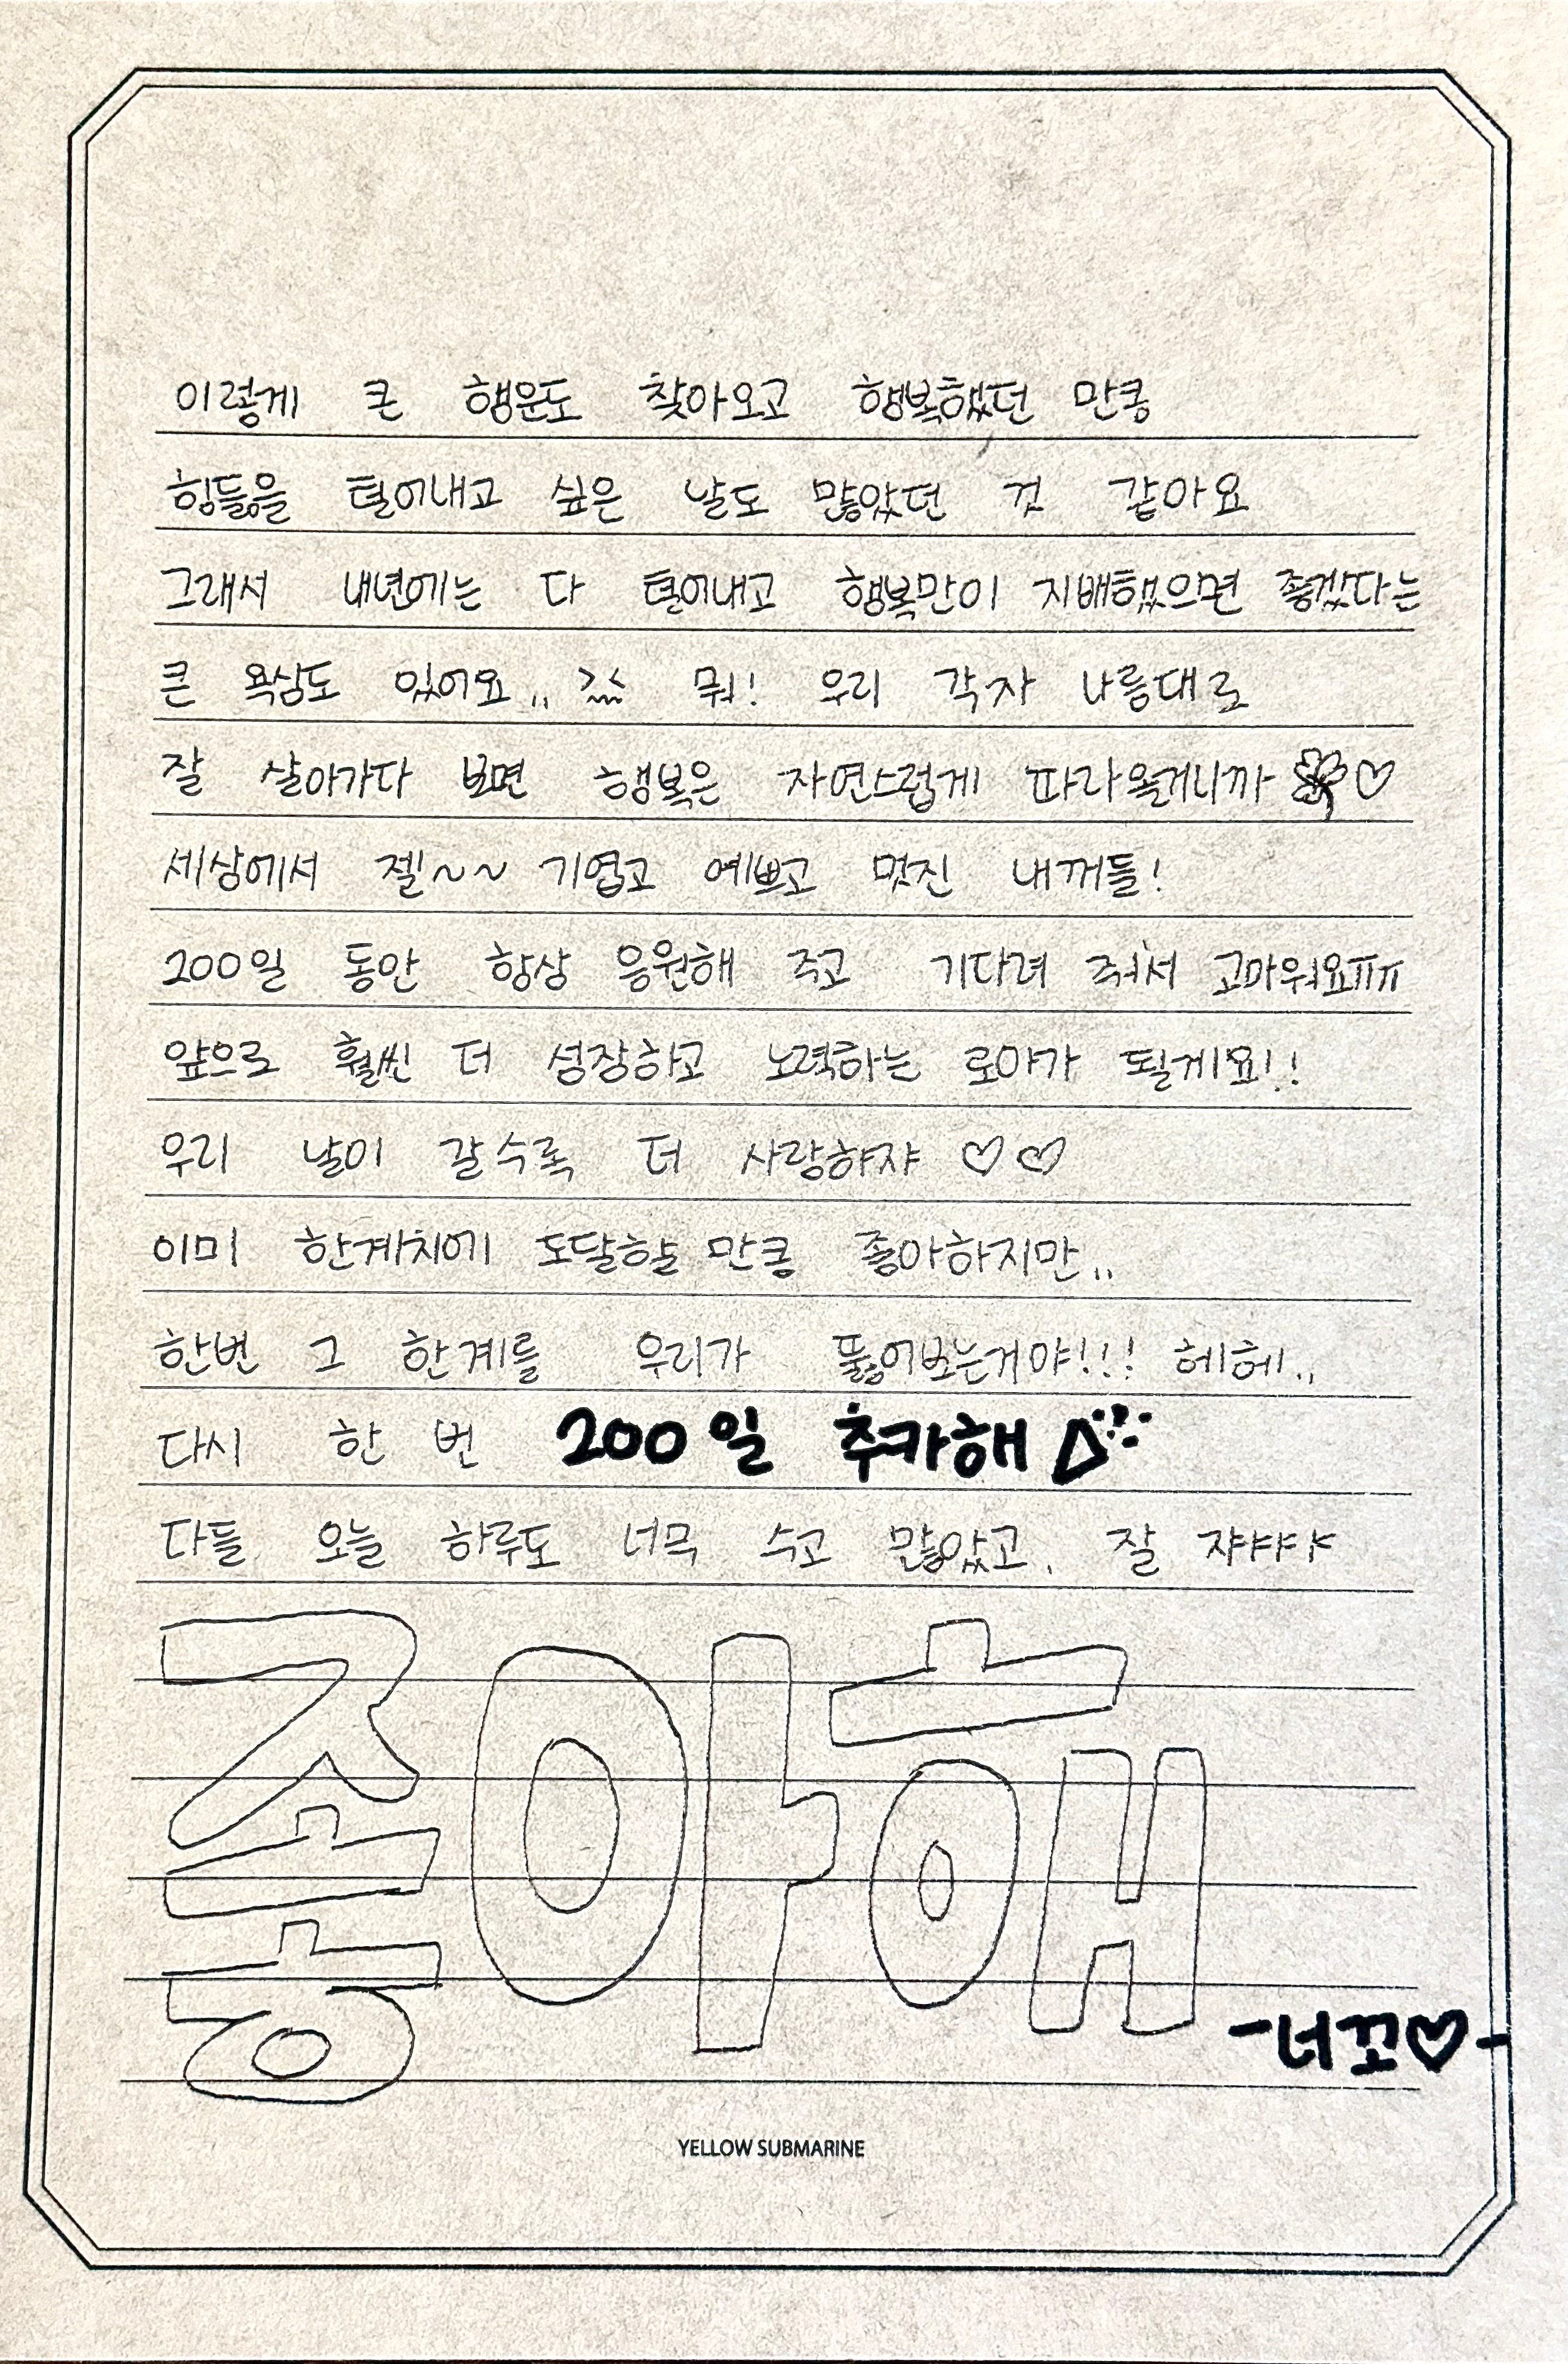 이렇게 큰 행운도 찾아오고 행복했던 만큼
힘듦을 털어내고 싶은 날도 많았던 것 같아요
그래서 내년에는 다 털어내고 행복만이 지배했으면 좋겠다는
큰 욕심도 있어요.. ㅋㅋㅋ 뭐! 우리 각자 나름대로
잘 살아가다 보면 행복은 자연스럽게 따라올거니까 ♡
세상에서 젤~~ 기엽고 예쁘고 멋진 내꺼들!
200일 동안 항상 응원해 주고 기다려 줘서 고마워요ㅠㅠ
앞으로 훨씬 더 성장하고 노력하는 로아가 될게요!!
우리 날이 갈수록 더 사랑햐쟈 ♡♡
이미 한계치에 도달할 만큼 좋아하지만..
한번 그 한계를 우리가 뚫어보는거야!!! 헤헤..
다시 한 번 200일 추카해
다들 오늘 하루도 너무 수고 많았고. 잘 쟈ㅑㅑㅑ
좋아해
-너꼬♡-
YELLOW SUBMARINE